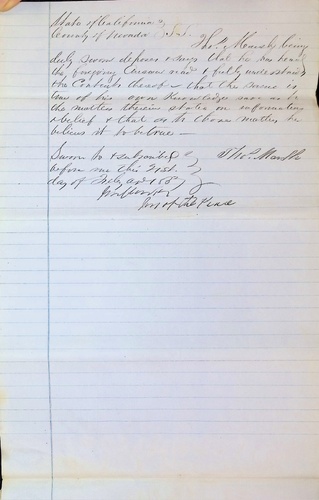 State of California
County of Nevada } S.S. Thos. Marsh being
duly sworn deposes & says that he has heard
the foregoing answer read & fully understands
the contents thereof – that the same is
true of his own knowledge save as to
the matters therein stated on information
& belief & that as to those matters he
believes it to be true –
Sworn to & subscribed } Thos. Marsh
before me this 21st
day of July AD
Jus of the Peace